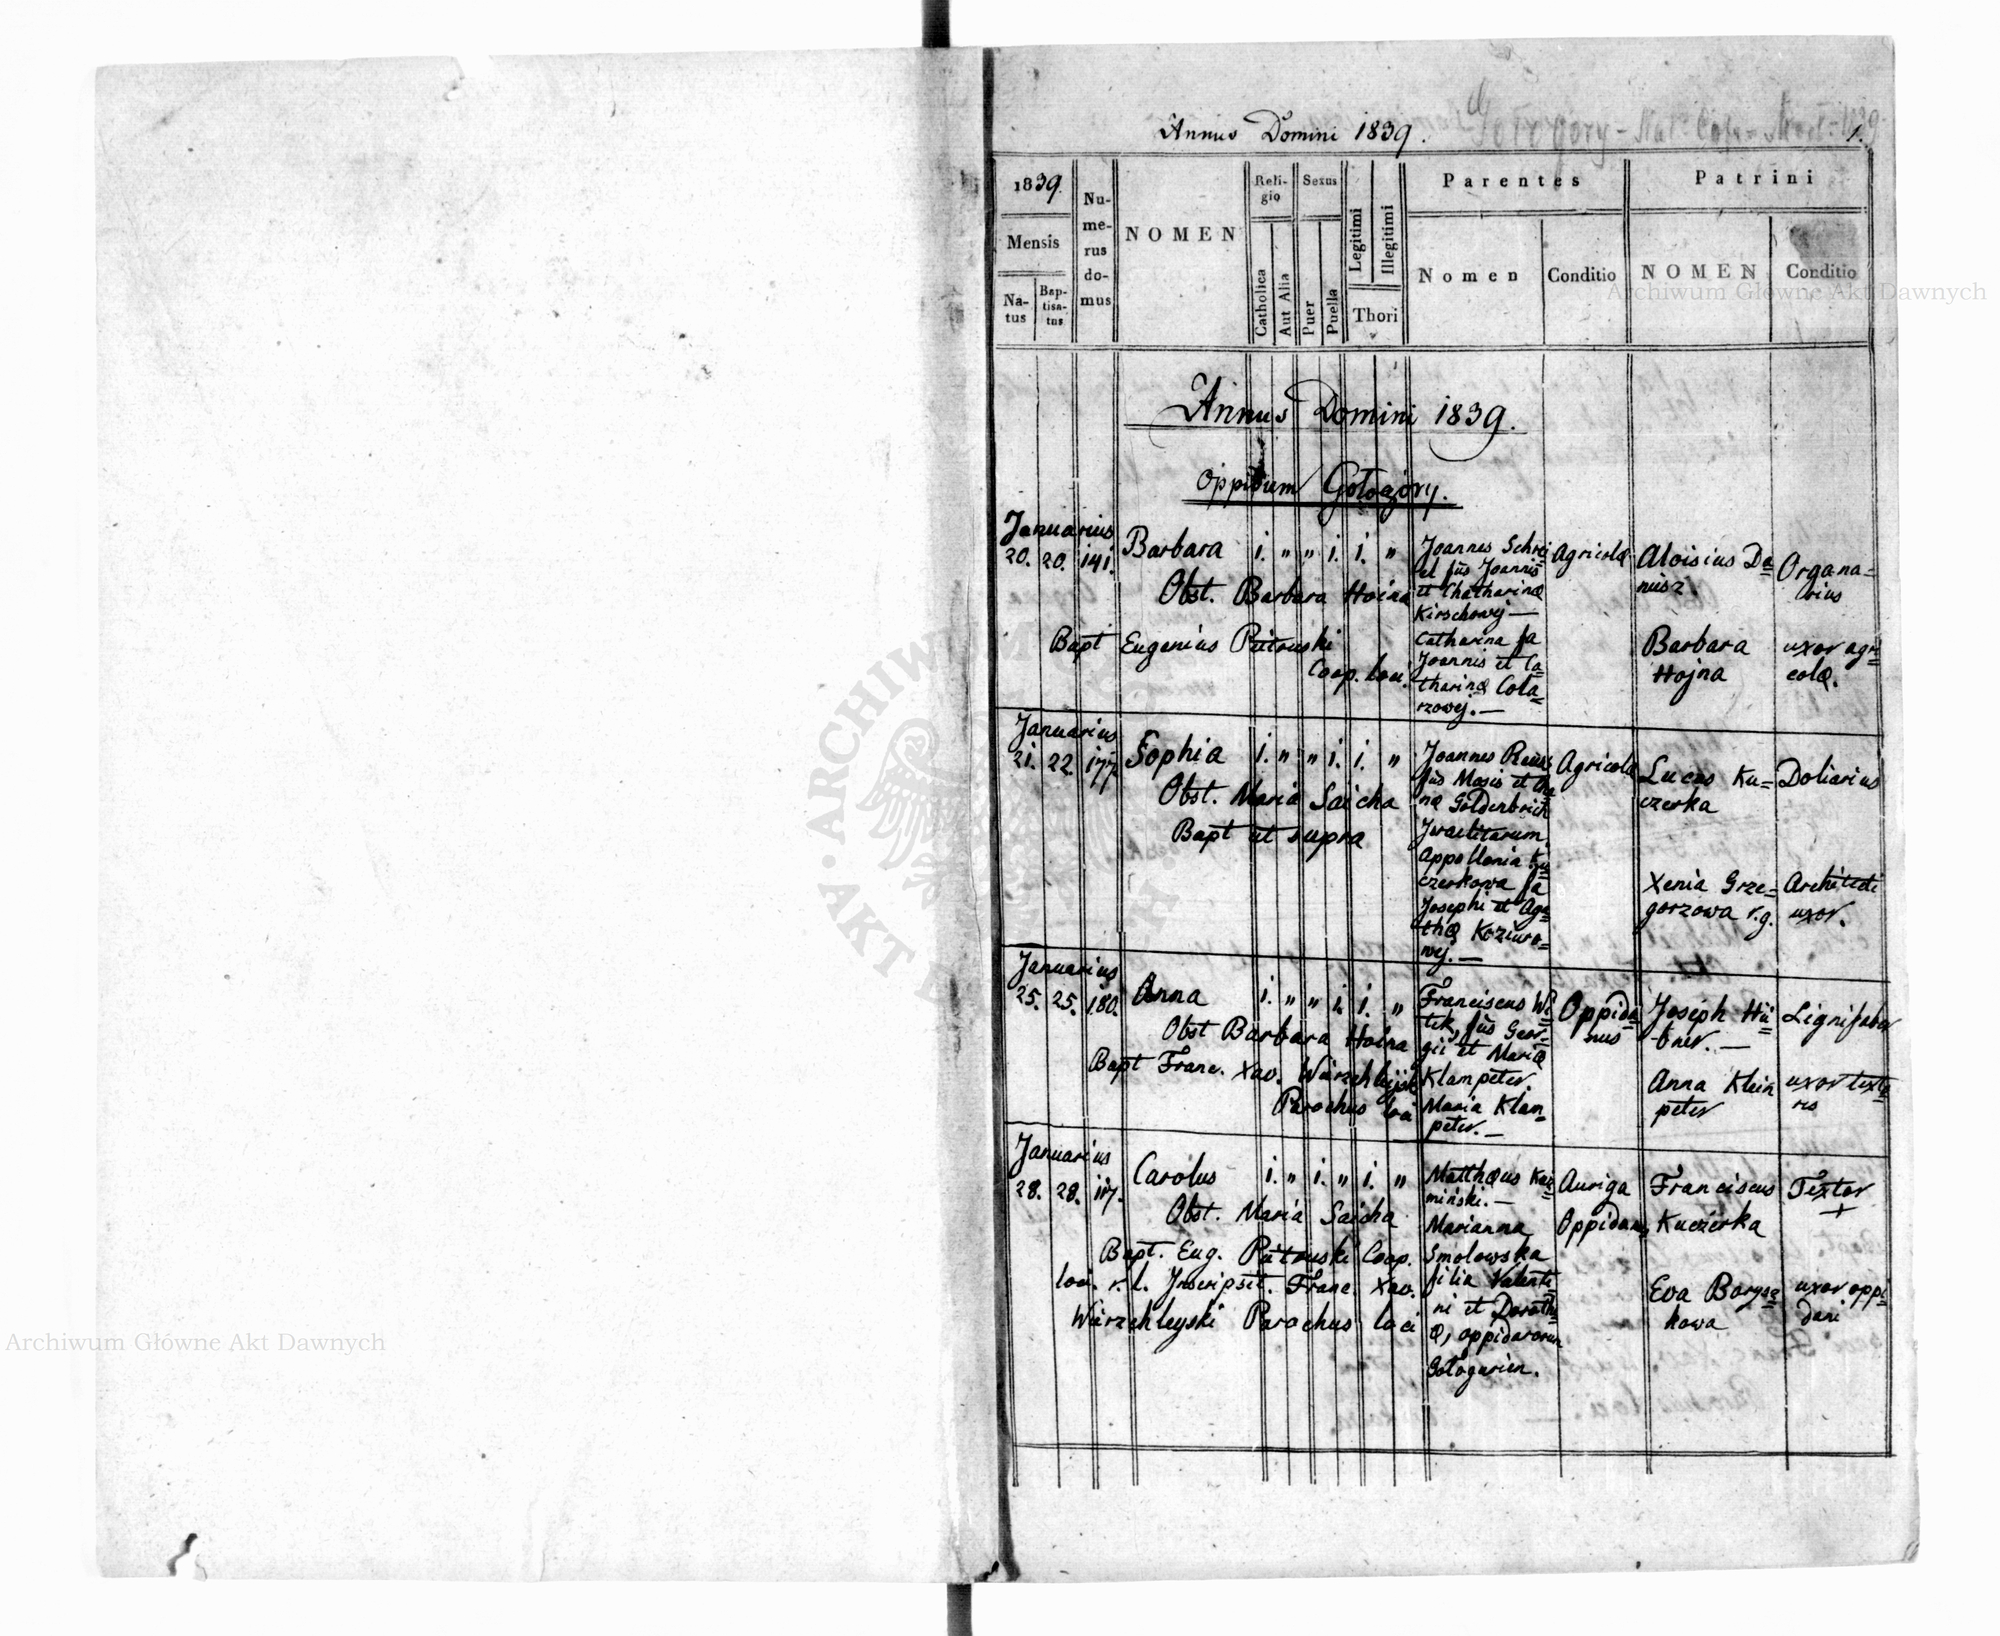 Annus Domini 1839.
Gołogóry - Nat. Cop. Mort. 1839
1.
1839.
Mensis
Na-
tus
Bap-
tisa-
tus
Nu-
me-
rus
do-
mus
NOMEN
Reli-
gio
Catholica
Aut Alia
Sexus
Puer
Puella
Legitimi
Illegitimi
Thori
Parentes
Nomen
Conditio
Patrini
NOMEN
Conditio
Archiwum Główne Akt Dawnych
Annus Domini 1839.
Oppidum Gołogóry.
Januarius
20. 20. 141.
Barbara i. " " i. i. "
Obst. Barbara Hoina
Bapt Eugenius Pietruski
Coop. loci.
Joannes Schrei
et fius Joannis
et Chatharinæ
Kirschowej —
Catharina fa
Joannis et Ca=
tharinæ Cola=
rzowej. —
Agricola
Aloisius Da=
nusz.
Organa=
rius
Barbara
Hojna
uxor agri=
colæ.
Januarius
21. 22. 177.
Sophia i. " " i. i. "
Obst. Maria Saicha
Bapt ut supra
Joannes
fius Mosis et An=
næ Goldenbrich
Israelitarum.
Appollonia Ku=
czerkowa fa
Josephi et Aga=
thæ Koziuro=
wej. —
Agricola
Lucas Ku=
czerka
Doliarius
Xenia Grze=
gorzowa r.g.
Architecti
uxor.
Januarius
25. 25. 180.
Anna i. " " i. i. "
Obst Barbara Hoina
Bapt Franc. Xav. Wierzchleyski
Parochus loci
Franciscus Wi=
tek, fius Geor=
gii et Mariæ
Klampeter.
Maria Klam=
peter. —
Oppida=
nus
Joseph Hü=
bner. —
Lignifaber
Anna Klein
peter
uxor texto=
ris
Januarius
28. 28. 117.
Carolus i. " i. " i. "
Obst. Maria Saicha
Bapt. Eug. Pietruski Coop.
loci. r. l. Inscripsit. Franc. Xav.
Wierzchleyski Parochus loci
Matthæus Ka=
miński. —
Marianna
Smolowska
filia Valenti=
ni et Doroth=
æ, oppidanorum
Gołogorien.
Auriga
Oppidanus
Franciscus
Kuczerka
Textor
+
Eva Borysz=
kowa
uxor oppi=
dani
ARCHIWUM
AKT DAWNYCH
Archiwum Główne Akt Dawnych